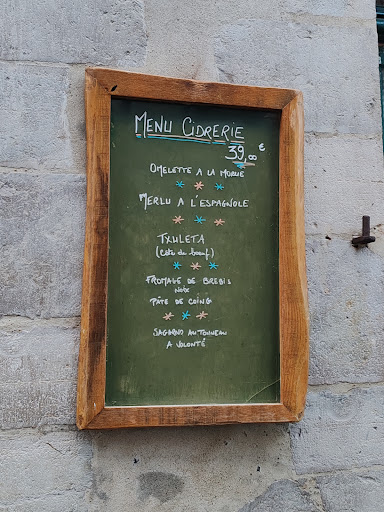 MENU CIDRERIE
39,00 €
OMELETTE A LA MORUE
MERLU A L'ESPAGNOLE
TXULETA
(Côte de bœuf)
FROMAGE DE BREBIS
NOIX
PÂTE DE COING
SAGARNO AU TONNEAU
A VOLONTÉ